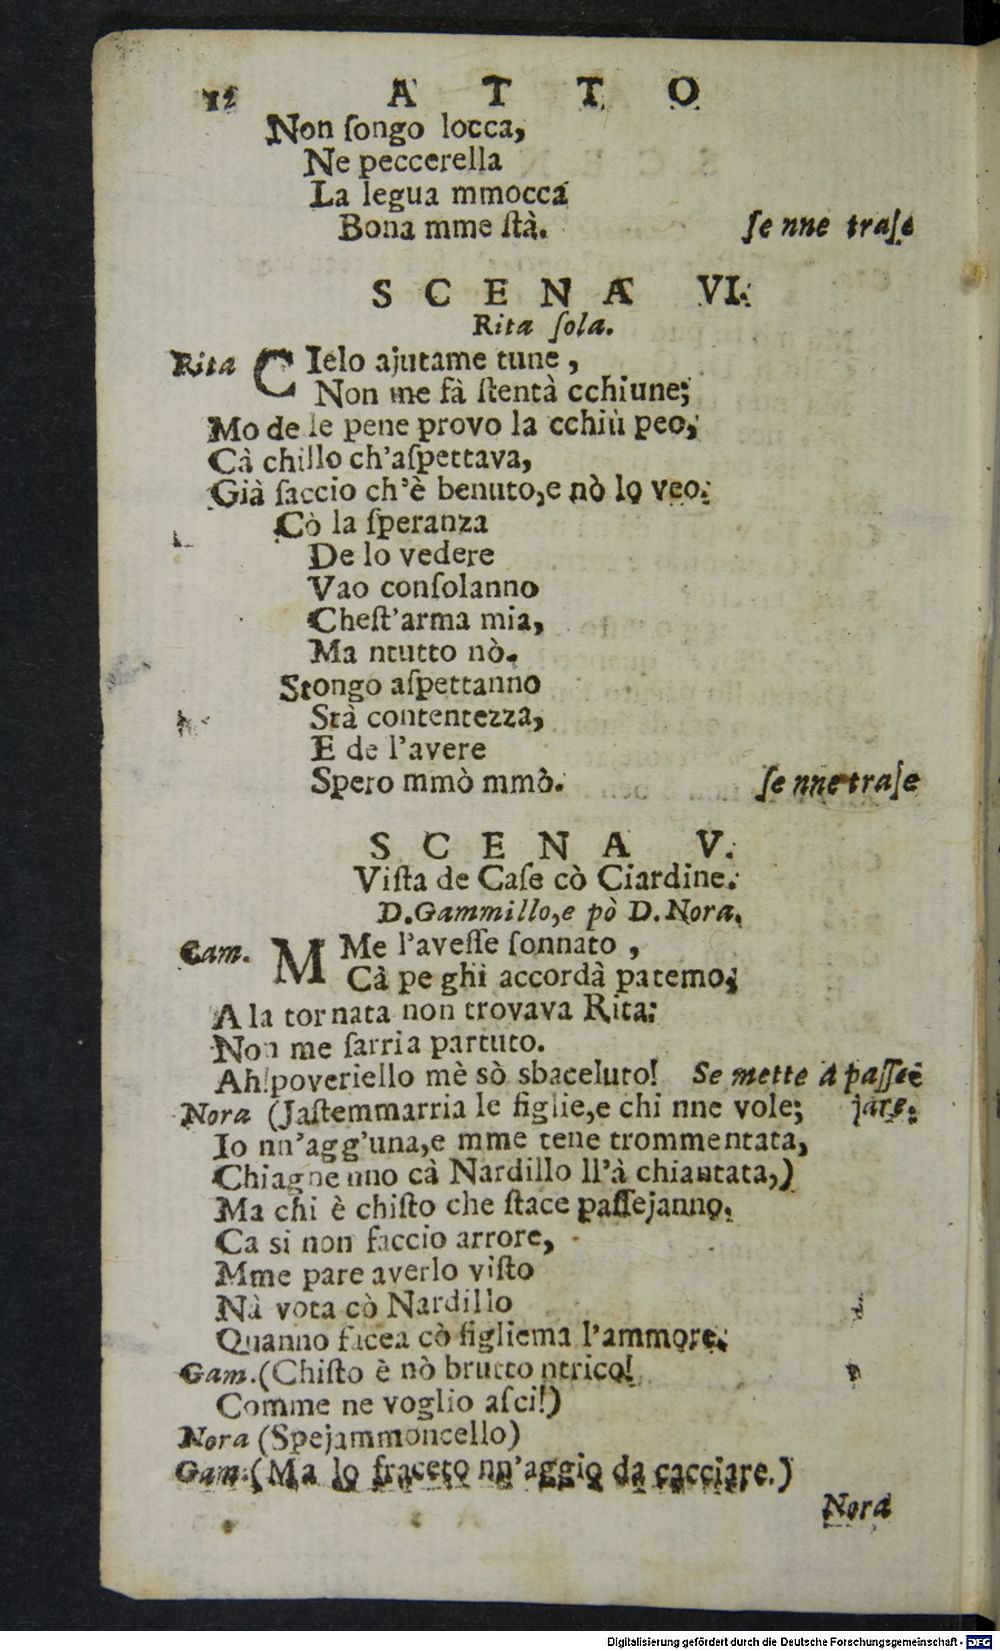 12 A T T O
Non ſongo locca,
Ne peccerella
La legua mmocca
Bona mme ſtà. ſe nne traſe
S C E N A VI.
Rita ſola.
Rita CIelo ajutame tune ,
Non me fà ſtentà cchiune;
Mo de le pene provo la cchiù peo;
Cà chillo ch'aſpettava,
Già ſaccio ch'è benuto,e nò lo veo.
Cò la ſperanza
De lo vedere
Vao conſolanno
Cheſt'arma mia,
Ma ntutto nò.
Stongo aſpettanno
Stà contentezza,
E de l'avere
Spero mmò mmò. ſe nne traſe
S C E N A V.
Viſta de Caſe cò Ciardine.
D.Gammillo,e pò D.Nora.
Gam. MMe l'aveſſe ſonnato ,
Cà pe ghì accordà patemo;
A la tornata non trovava Rita;
Non me ſarria partuto.
Ah!poveriello mè sò sbaceluto! Se mette à paſſee
Nora (Jaſtemmarria le figlie,e chi nne vole; jare.
Io nn'agg'una,e mme tene trommentata,
Chiagneuno cà Nardillo ll'à chiantata,)
Ma chi è chiſto che ſtace paſſejanno.
Ca si non faccio arrore,
Mme pare averlo viſto
Nà vota cò Nardillo
Quanno facea cò figliema l'ammore.
Gam.(Chiſto è nò brutto ntrico!
Comme ne voglio aſci!)
Nora (Spejammoncello)
Gam.(Ma lo fraceto nn'aggio da cacciare.)
Nora
Digitalisierung gefördert durch die Deutsche Forschungsgemeinschaft - DFG